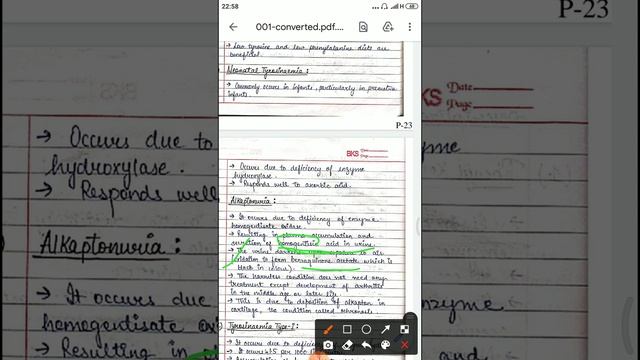 22:58
001-converted.pdf....
P-23
→ Low tyrosine and low phenylalanine diets are
beneficial.
Neonatal Tyrosinaemia :
→ Commonly occurs in infants, particularly in premature
infants.
P-23
BKS Date
Page
→ Occurs due to deficiency of enzyme
hydroxylase.
→ Responds well to ascorbic acid.
Alkaptonuria :
→ It occurs due to deficiency of enzyme
homogentisate oxidase.
→ Resulting in plasma accumulation and
excretion of homogentisic acid in urine.
→ The urine darkens upon exposure to air
oxidation to form benzoquinone acetate which is
black in colour).
→ The harmless condition does not need any
treatment except development of arthritis
in the middle age or later life.
→ This is due to deposition of alkapton in
cartilage, the condition called ochronosis.
Tyrosinaemia Type-I :
→ It occurs due to defici
→ It occurs
per 1000
→ Occurs due to
hydroxylase.
→ Responds well
Alkaptonuria :
→ It occurs due
homogentisate ox
→ Resulting in
KS Date
Page
nzyme
enzyme
and